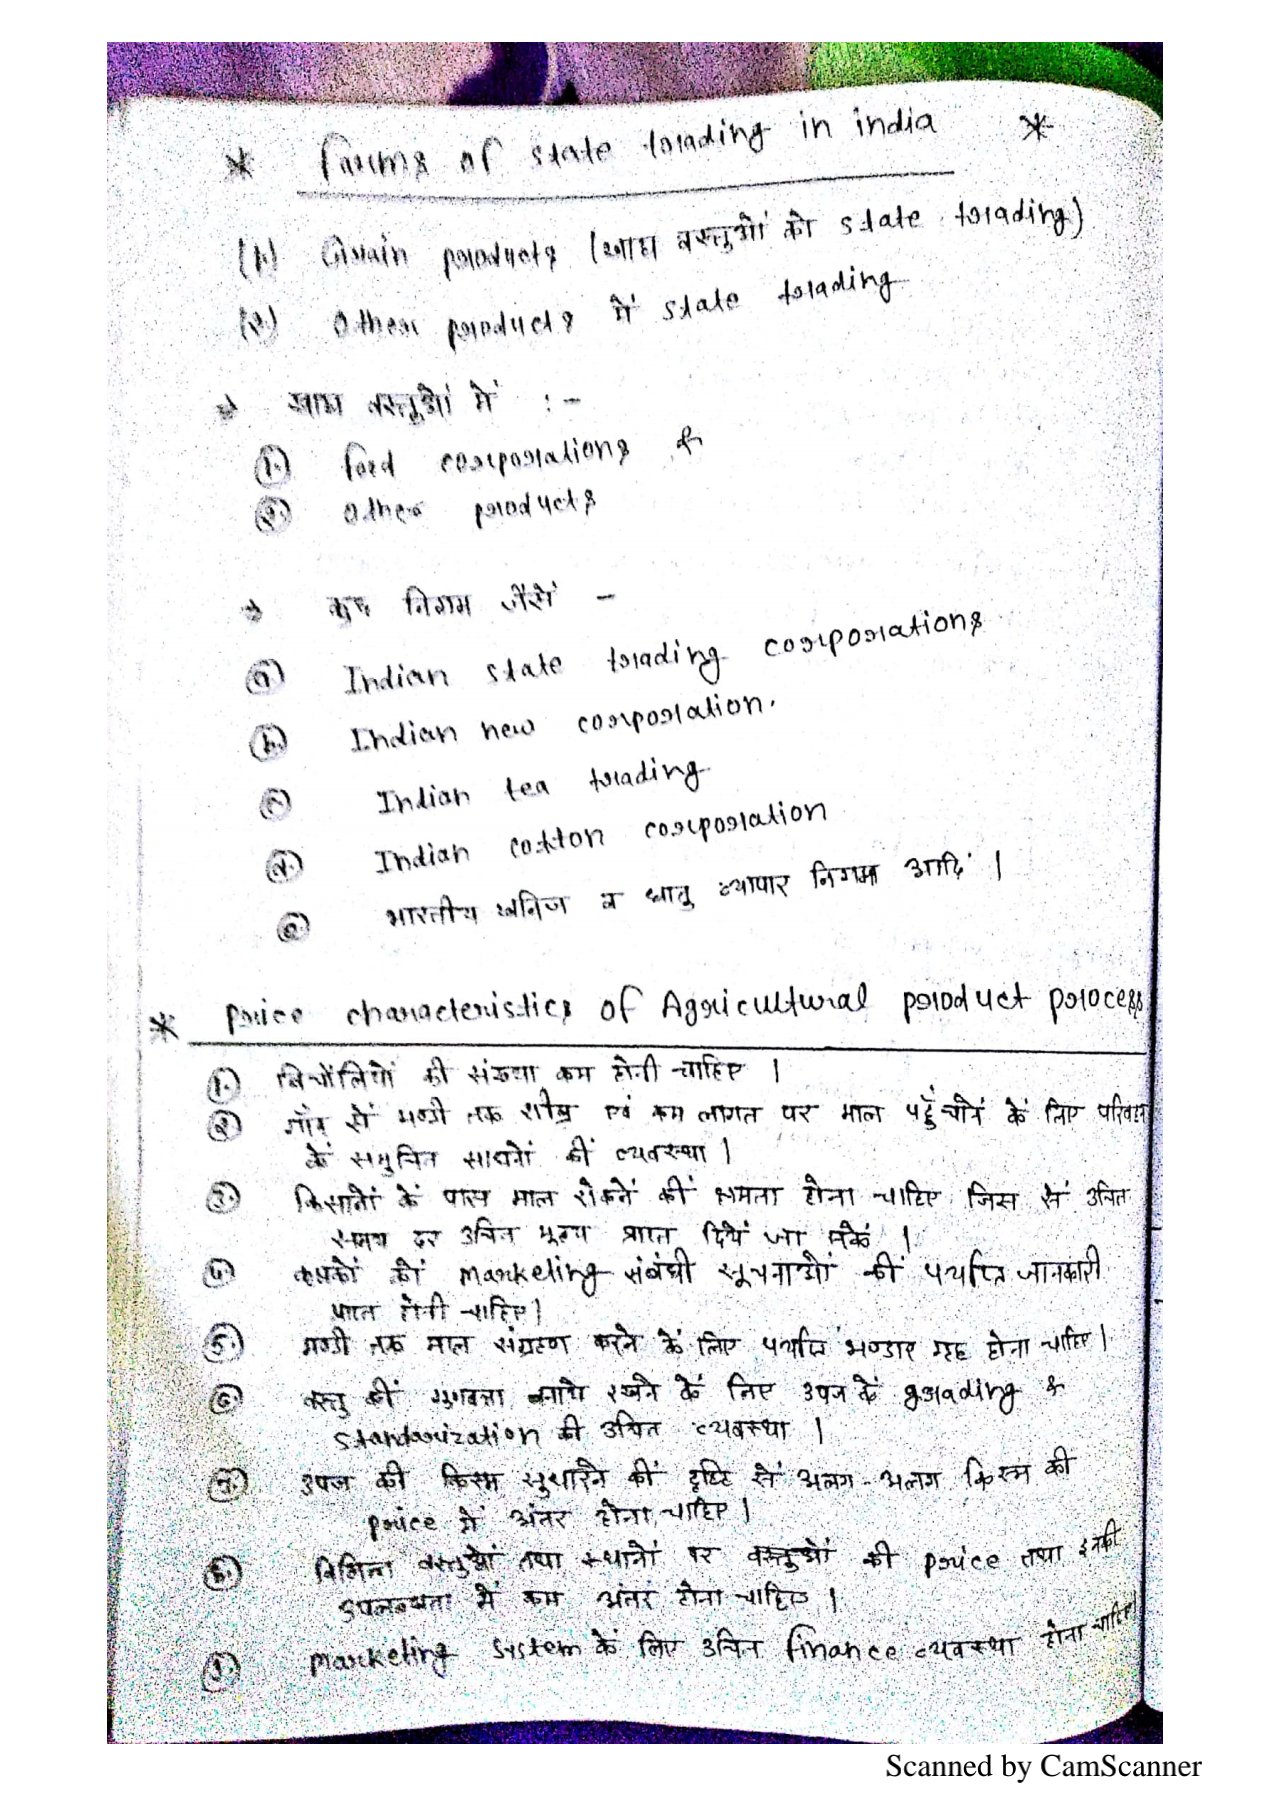 * Forms of state trading in india *
(1) Grain products (खाद्य वस्तुओं को state trading)
(2) Other products में state trading
→ खाद्य वस्तुओं में :-
1. Food corporations &
2. Other products
→ कुछ निगम जैसे -
a) Indian state trading corporations
b) Indian new corporation.
c) Indian tea trading
d) Indian cotton corporation
e) भारतीय खनिज व धातु व्यापार निगम आदि।
* Price characteristics of Agricultural product process
1. बिचौलियों की संख्या कम होनी चाहिए।
2. गाँव से मण्डी तक शीघ्र एवं कम लागत पर माल पहुँचाने के लिए परिवहन
के समुचित साधनों की व्यवस्था।
3. किसानों के पास माल रोकने की क्षमता होना चाहिए जिस से उचित
समय पर उचित मूल्य प्राप्त किये जा सके।
4. कृषकों को marketing संबंधी सूचनाओं की पर्याप्त जानकारी
प्राप्त होनी चाहिए।
5. मण्डी तक माल संग्रहण करने के लिए पर्याप्त भण्डार गृह होना चाहिए।
6. वस्तु की गुणवत्ता बनाये रखने के लिए उपज के grading &
standarization की उचित व्यवस्था।
7. उपज की किस्म सुधारने की दृष्टि से अलग-अलग किस्म की
price में अंतर होना चाहिए।
8. विभिन्न वस्तुओं तथा स्थानों पर वस्तुओं की price तथा इनकी
उपलब्धता में कम अंतर होना चाहिए।
9. marketing system के लिए उचित finance व्यवस्था होना चाहिए।
Scanned by CamScanner